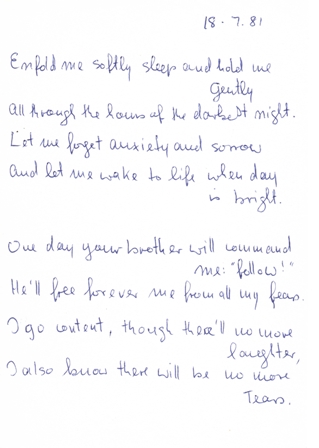 18.7.81
Enfold me softly sleep and hold me
Gently
all through the hours of the darkest night.
Let me forget anxiety and sorrow
and let me wake to life when day
is bright.
One day your brother will command
me: "follow!"
He'll free forever me from all my fears.
I go content, though there'll no more
laughter,
I also know there will be no more
Tears.